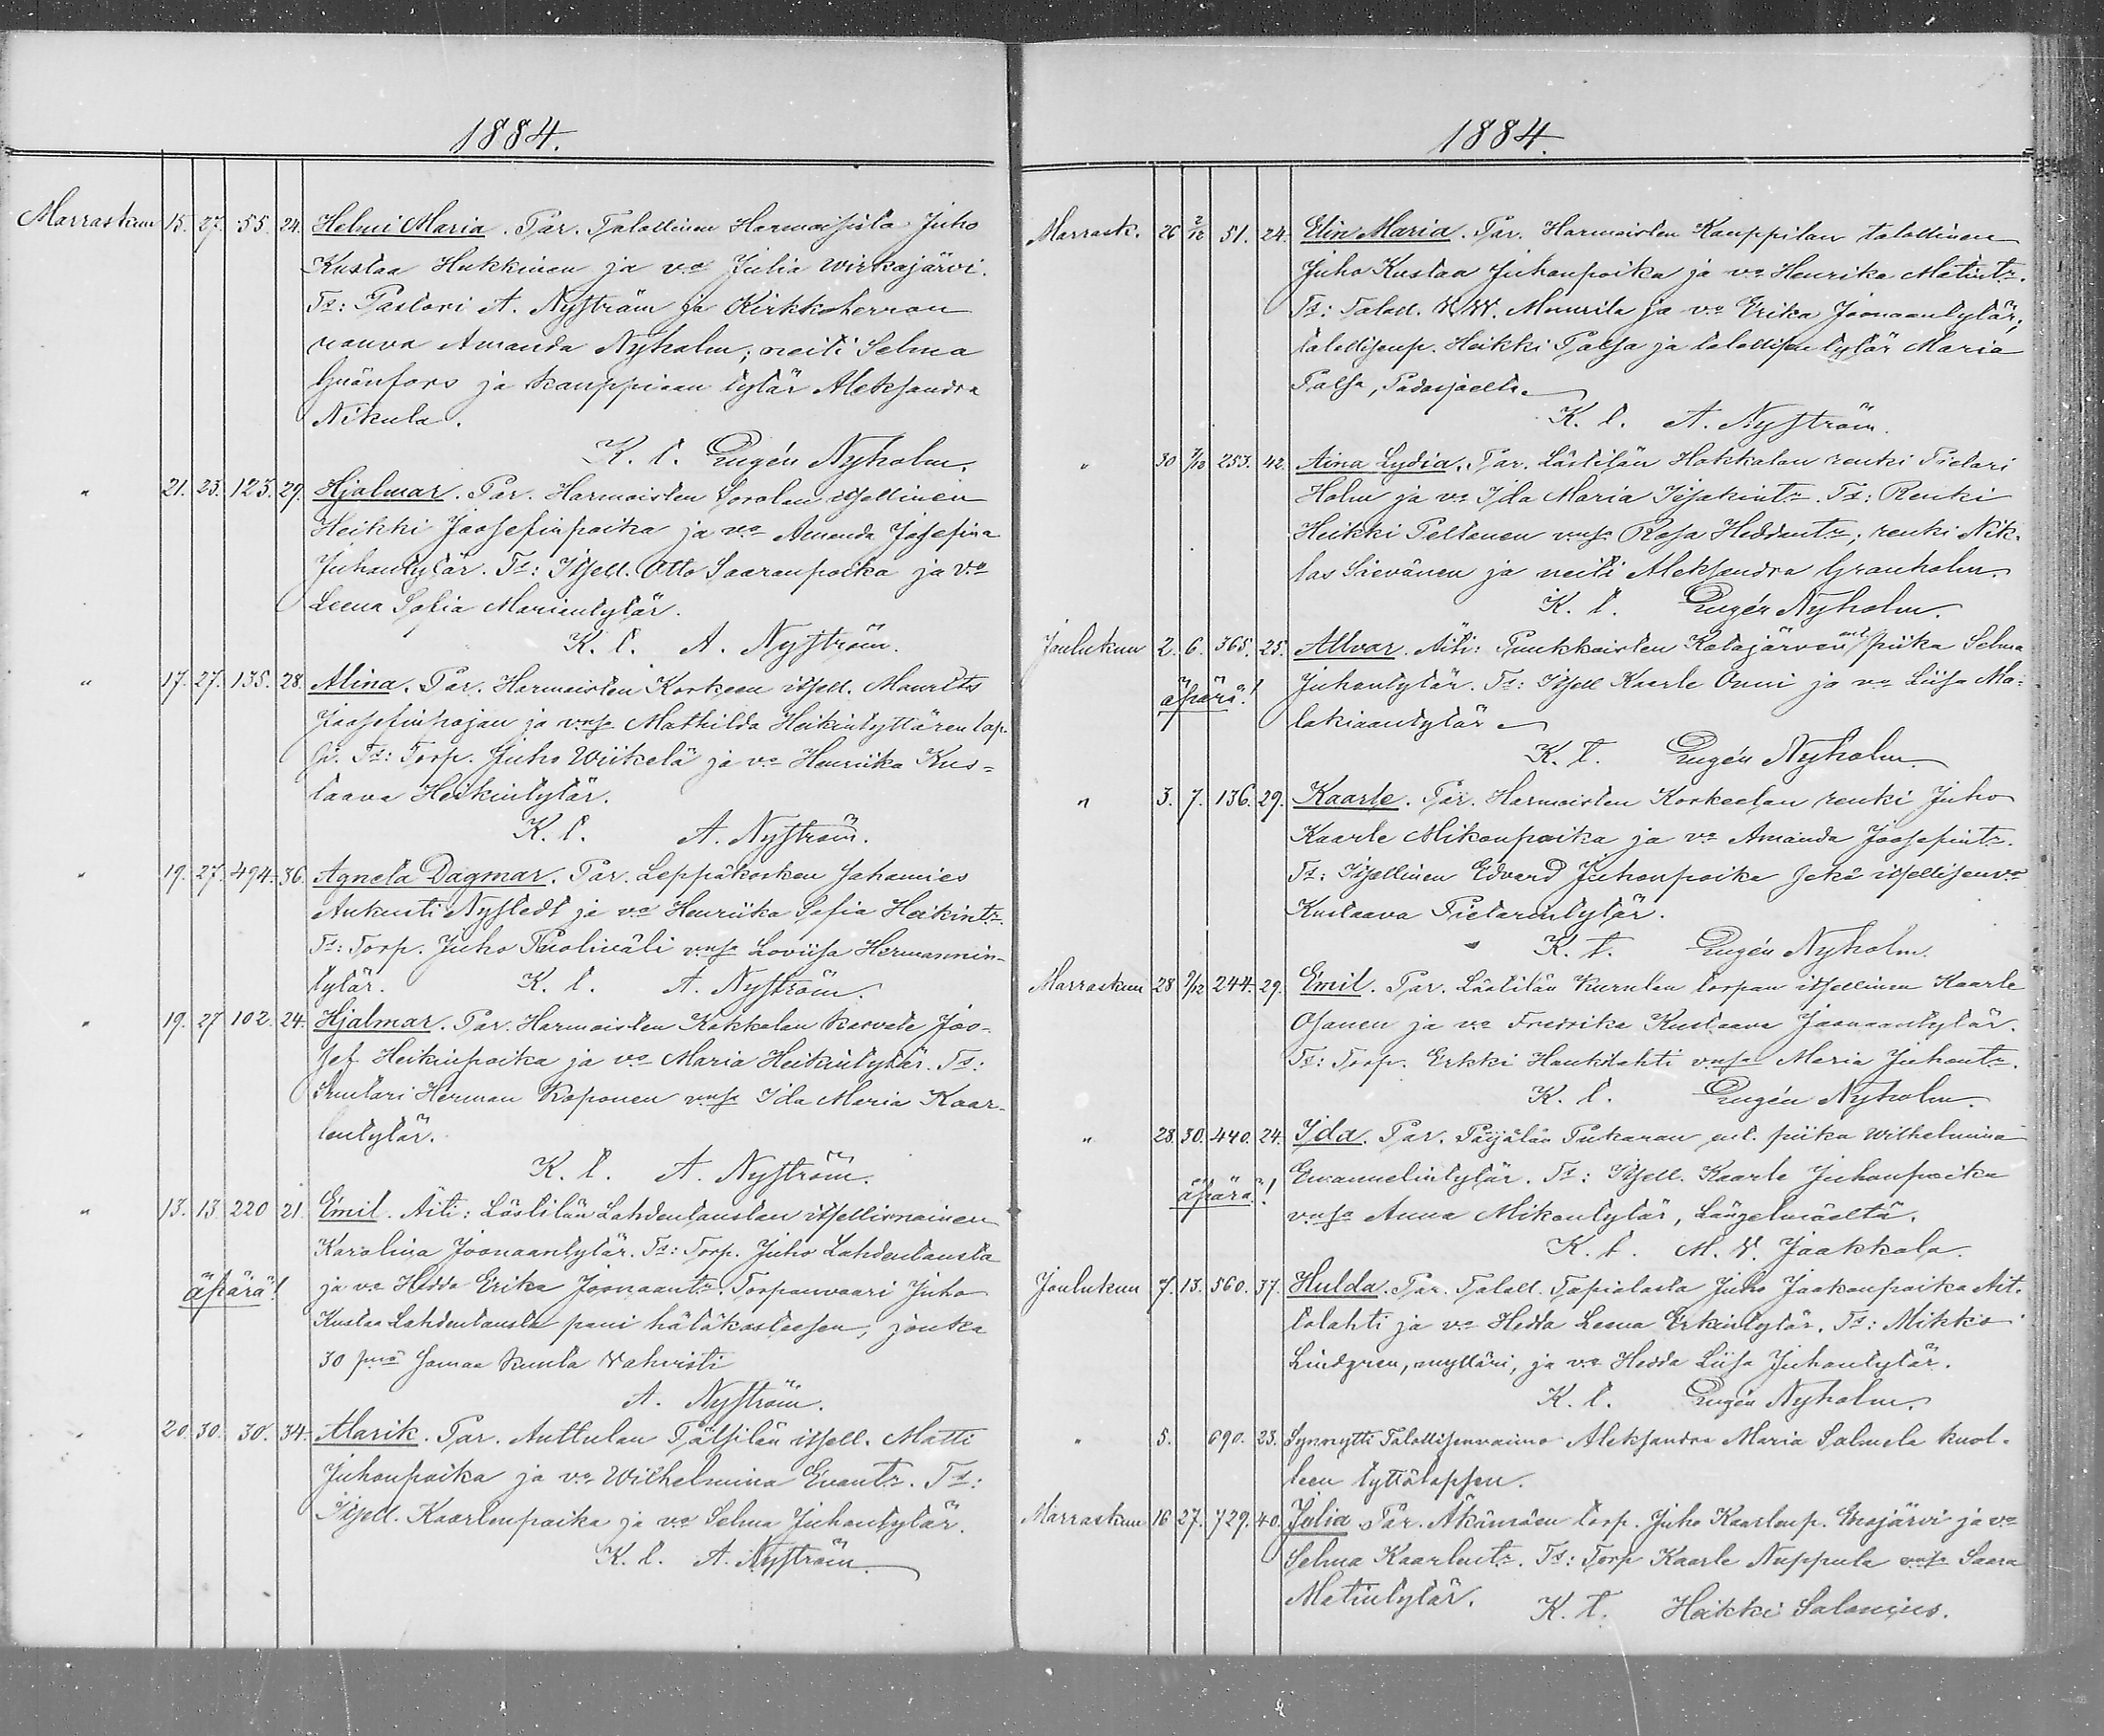 1884.
Marraskuu 15. 27. 55. 24. Helmi Maria. Par. Talollinen Harmoisista Juho
Kustaa Hukkinen ja vo Julia Wirkajärvi.
Td: Pastori A. Nyström ja Kirkkoherran
rouva Amanda Nyholm; neiti Selma
Granfors ja kauppiaan tytär Aleksandra
Nikula.
K. t. Eugén Nyholm.
" 21. 23. 123. 29. Hjalmar. Par. Harmoisten itsellinen
Heikki Joosefinpoika ja vo Amanda Josefina
Juhantytär. Td: Itsell. Otto Saaranpoika ja vo
Leena Sofia Mariantytär.
K. t. A. Nyström.
" 17. 27. 135. 28. Alina. Par. Harmoisten Korkeen itsell. Mauritz
Joosefinpojan ja vnsa Mathilda Heikintyttären lap-
si. Td: Torp. Juho Wiikelä ja vo Henriika Kus-
taava Heikintytär.
K. t. A. Nyström.
" 19. 27. 494. 36. Agneta Dagmar. Par. Leppäkosken Sahamies
Aukusti Nystedt ja vo Henriika Sofia Heikintr.
Td: Torp. Juho Puoliväli vnsa Loviisa Hermannin-
tytär. K. t. A. Nyström.
" 19. 27 102. 24. Hjalmar. Par. Harmoisten Kokkolan Joo-
sef Heikinpoika ja vo Maria Heikintytär. Td:
Herman Koponen vnsa Ida Maria Kaar-
lentytär.
K. t. A. Nyström.
" 13. 13. 220 21. Emil. Äiti: Lästilän Lahdentaustan itsellisnainen
Karolina Joonaantytär. Td: Torp. Juho Lahdentausta
äpärä! ja vo Hedda Erika Joonaantr. Torpanvaari Juho
Kustaa Lahdentausta pani hätäkasteesen, jonka
30 pnä samaa kuuta vahvisti
A. Nyström.
" 20. 30. 30. 34. Alarik. Par. Auttulan itsell. Matti
Juhonpoika ja vo Wilhelmina Evantr. Td:
Itsell. Kaarlonpoika ja vo Selma Juhantytär.
K. t. A. Nyström.
1884.
Marrask. 26 2/12 51. 24. Elin Maria. Par. Harmoisten Kauppilan talollinen
Juho Kustaa Juhanpoika ja vo Henrika Matintr.
Td: Taloll. V. W. Mourila ja vo Erika Joonaantytär;
talollisenp. Heikki Palsa ja talollisen tytär Maria
Palsa, Padasjoelta.
K. t. A. Nyström.
" 30 7/12 253. 42. Aina Lydia. Par. Lästilän Hokkalan renki Pietari
Holm ja vo Ida Maria Iisakintr. Td: Renki
Heikki Peltonen vnsa Rosa Heddantr; renki Nik-
las Säevänen ja neiti Aleksandra Granholm.
K. t. Eugén Nyholm.
Joulukuu 2. 6. 365. 25. Allvar. Äiti: Puukkoisten Katajärven ent. piika Selma
äpärä! Juhantytär. Td: Itsell Kaarle Onni ja vo Liisa Ma-
lakiaantytär
K. t. Eugén Nyholm.
" 3. 7. 136. 29. Kaarle. Par. Harmoisten Korkeelan renki Juho
Kaarle Mikonpoika ja vo Amanda Joosepintr.
Td: Itsellinen Edvard Juhonpoika sekä itsellisenvo
Kustaava Pietarintytär.
K. t. Eugén Nyholm.
Marraskuu 28 7/12 244. 29. Emil. Par. Lästilän torpan itsellinen Kaarle
Osanen ja vo Fredrika Kustaava Joonaantytär.
Td: Torp. Erkki Haukilahti vnsa Maria Juhantr.
K. t. Eugén Nyholm.
" 28. 30. 440. 24. Ida. Par. Päijälän Pukaran ent. piika Wilhelmina
äpärä! Emanuelintytär. Td: Itsell. Kaarle Juhanpoika
vnsa Anna Mikontytär, Längelmäeltä.
K. t. M. V. Jaakkola.
Joulukuu 7. 13. 560. 37. Hulda. Par. Taloll. Tapialasta Juho Jaakonpoika Ait-
tolahti ja vo Hedda Leena Erkintytär. Td: Mikko
Lindgren, mylläri, ja vo Hedda Liisa Juhantytär.
K. t. Eugén Nyholm.
" 5. 690. 23. Synnytti Talollisenvaimo Aleksandra Maria Salmela kuol-
leen tyttölapsen.
Marraskuu 16 27. 729. 40. Julia Par. Äkämäen torp. Juho Kaarlonp. Enojärvi ja vo
Selma Kaarlentr. Td: Torp Kaarle Nuppula vnsa Saara
Matintytär. K. t. Heikki Salonius.